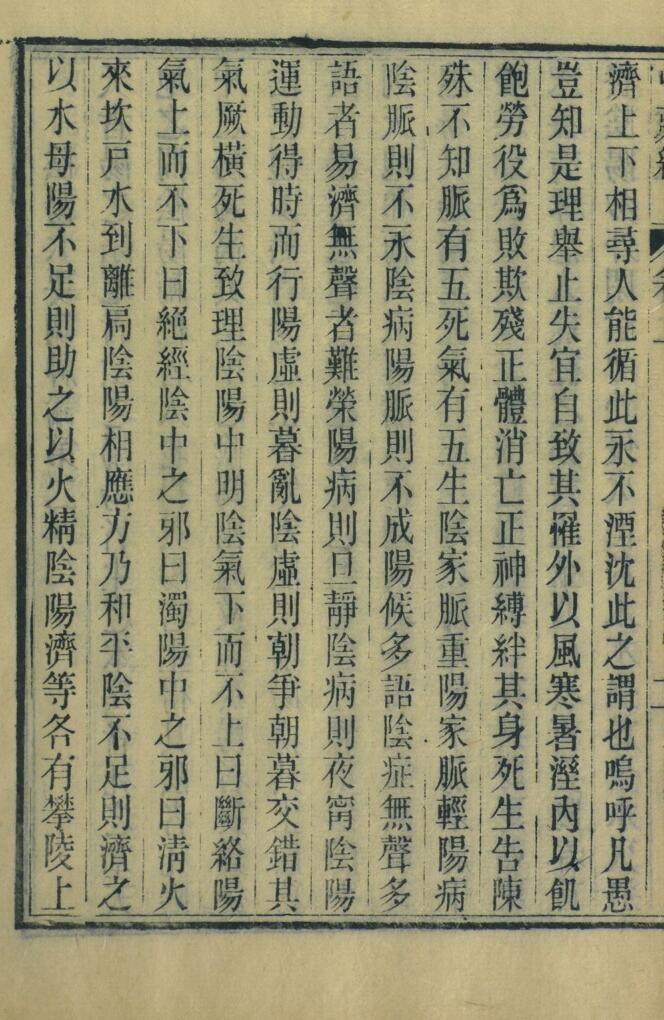 濟上下相尋人能循此永不湮沈此之謂也嗚呼凡愚
豈知是理舉止失宜自致其罹外以風寒暑溼內以飢
飽勞役爲敗欺殘正體消亡正神縛絆其身死生告陳
殊不知脈有五死氣有五生陰家脈重陽家脈輕陽病
陰脈則不永陰病陽脈則不成陽候多語陰症無聲多
語者易濟無聲者難榮陽病則旦靜陰病則夜甯陰陽
運動得時而行陽虛則暮亂陰虛則朝爭朝暮交錯其
氣厥橫死生致理陰陽中明陰氣下而不上曰斷絡陽
氣上而不下曰絕經陰中之邪曰濁陽中之邪曰淸火
來坎戶水到離扃陰陽相應方乃和平陰不足則濟之
以水母陽不足則助之以火精陰陽濟等各有攀陵上